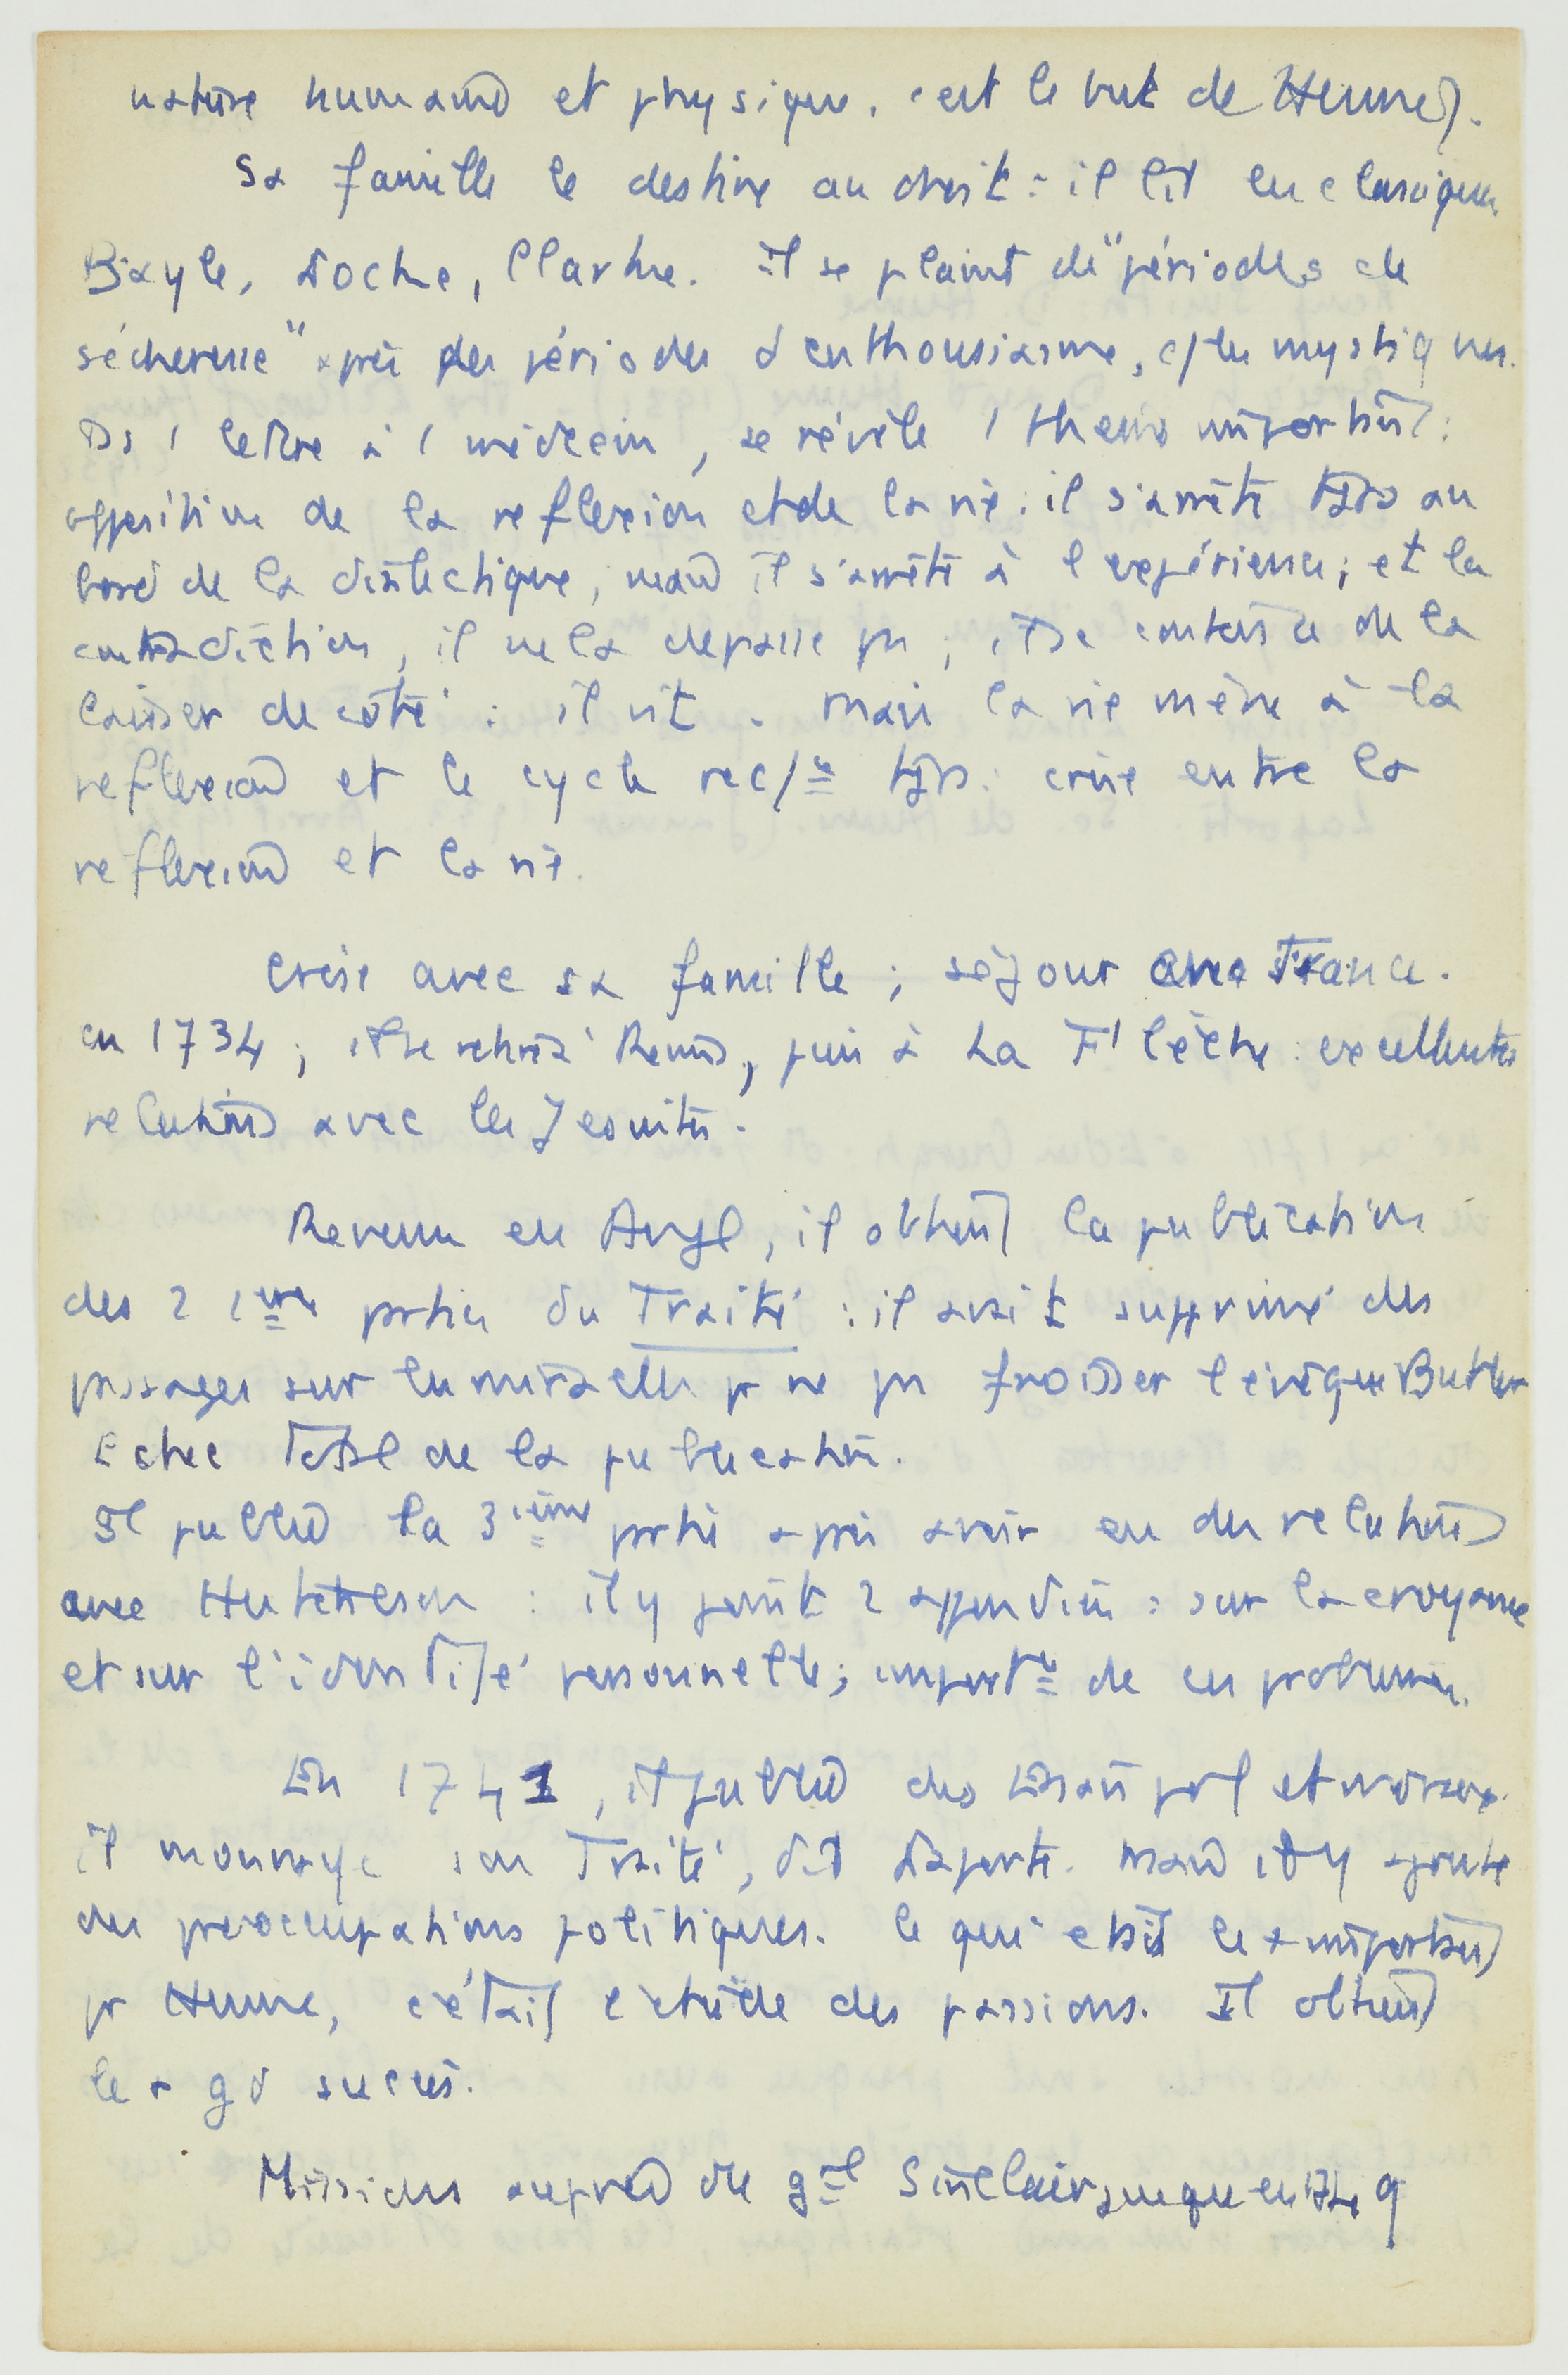 nature humaine et physique, c'est le but de Hume.
Sa famille le destine au droit : il lit les classiques
Bayle, Locke, Clarke. il se plaint de "périodes de
sécheresse" après des périodes d'enthousiasme, c/ les mystiques.
Ds 1 lettre à 1 médecin, se révèle 1 thème important :
opposition de la reflexion et de la vie : il s'arrête tjrs au
bord de la dialectique, mais il s'arrête à l'expérience ; et la
contradiction, il ne la depasse pas, il se contente de la
laisser de côté : il vit. Mais la vie mène à la
reflexion et le cycle rec/ce tjrs : crise entre la
reflexion et la vie.
Crise avec sa famille ; séjour en France.
en 1734 ; il se retire à Reims, puis à La Flèche : excellentes
relations avec les Jesuites.
Revenu en Angl, il obtient la publication
des 2 1ères parties du Traité : il avait supprimé des
passages sur les miracles pr ne pas froisser l'évêque Butler
Echec total de la publication.
Il publie la 3ième partie après avoir eu des relations
avec Hutcheson : il y joint 2 appendices : sur la croyance
et sur l'identité personnelle ; importce de ces problèmes.
En 1741, il publie des Essais pol et moraux.
il monnaye son Traité, dit Laporte. Mais il y ajoute
des preoccupations politiques. Ce qui etait le + important
pr Hume, c'était l'étude des passions. Il obtient
le + gd succès.
Missions auprès du gal Sinclair jusqu'en 1749